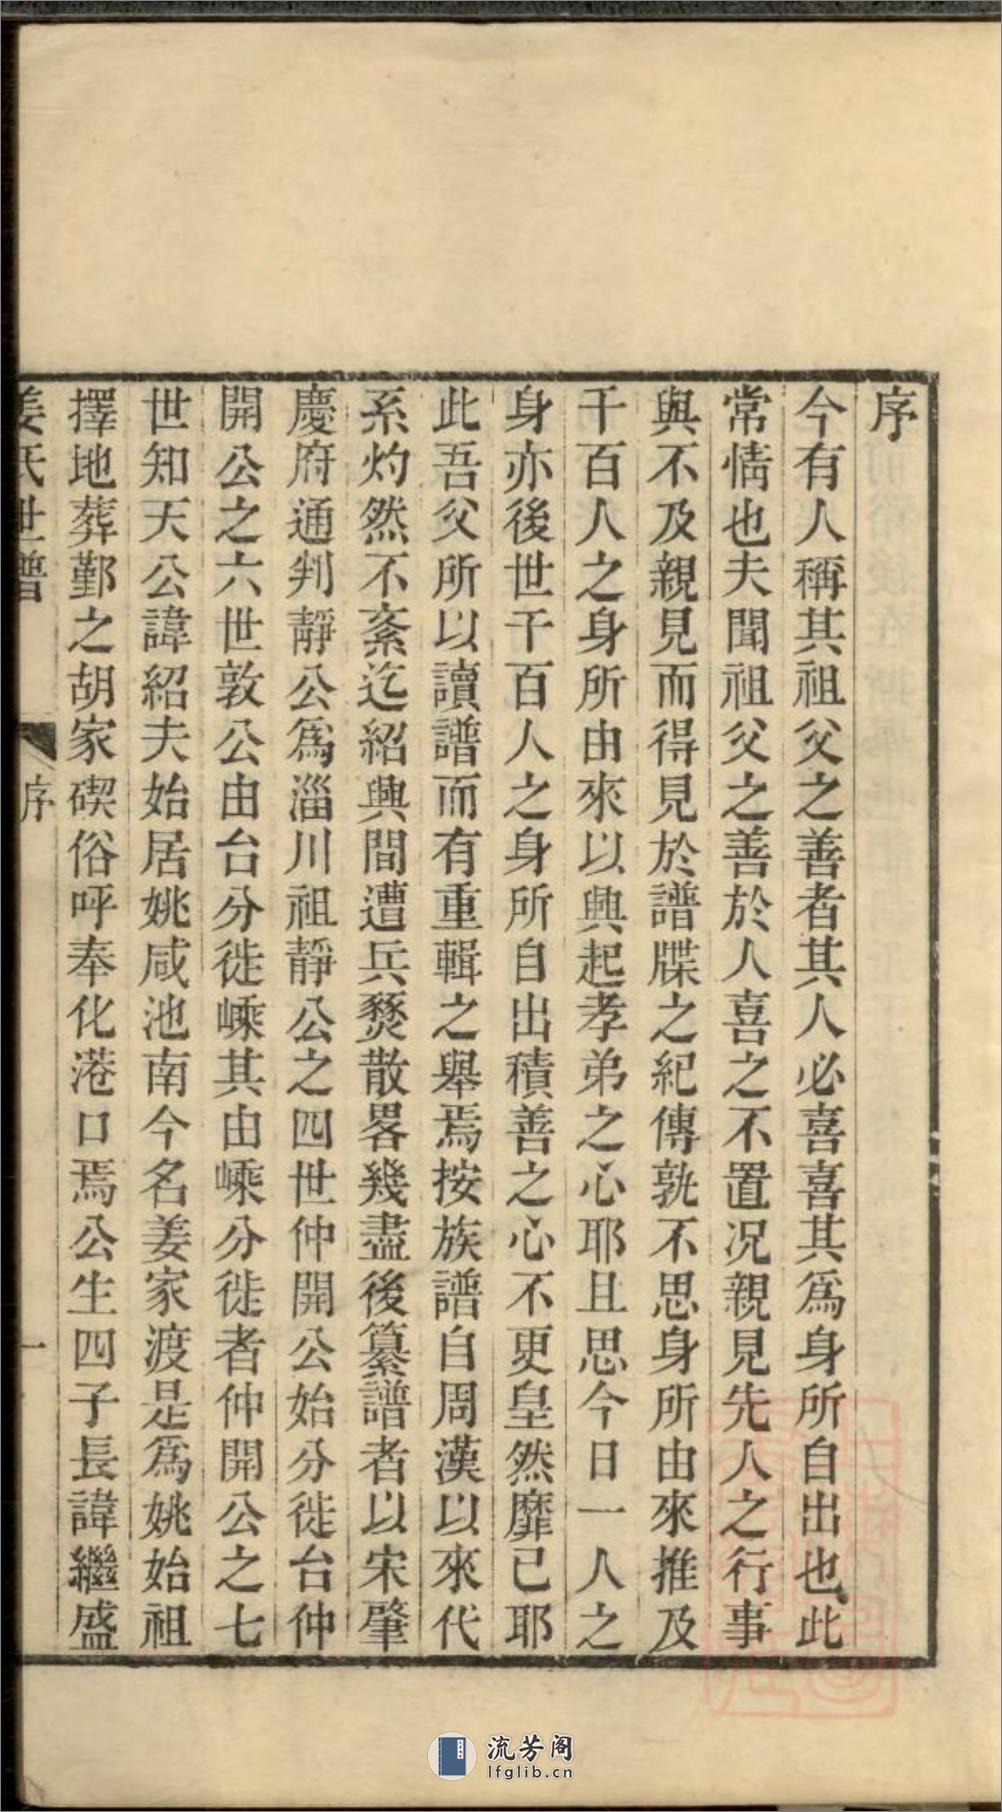 序
今有人稱其祖父之善者其人必喜喜其爲身所自出也此
常情也夫聞祖父之善於人喜之不置况親見先人之行事
與不及親見而得見於譜牒之紀傳孰不思身所由來推及
千百人之身所由來以興起孝弟之心耶且思今日一人之
身亦後世千百人之身所自出積善之心不更皇然靡已耶
此吾父所以讀譜而有重輯之舉焉按族譜自周漢以來代
系灼然不紊迄紹興間遭兵燹散畧幾盡後纂譜者以宋肇
慶府通判靜公爲淄川祖靜公之四世仲開公始分徙台仲
開公之六世敦公由台分徙嵊其由嵊分徙者仲開公之七
世知天公諱紹夫始居姚咸池南今名姜家渡是爲姚始祖
擇地葬鄞之胡家碶俗呼奉化港口焉公生四子長諱繼盛
姜氏世譜 序 一
流芳阁
lfglib.cn